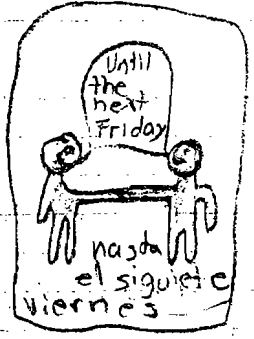 Until
the
next
Friday
hasta
el siguiete
viernes